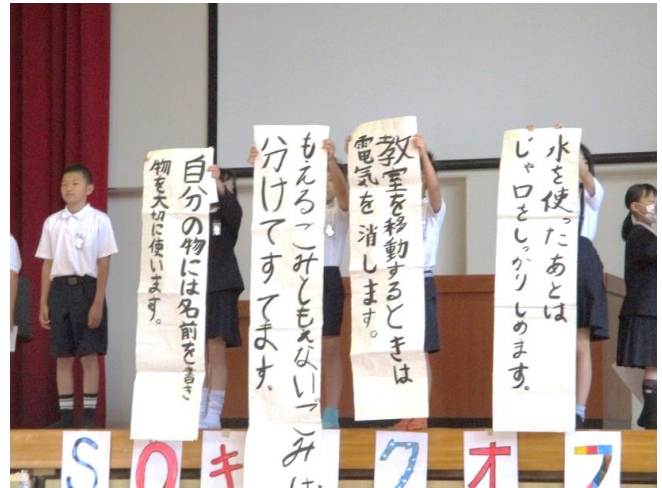 水を使ったあとは
じゃ口をしっかりしめます。
教室を移動するときは
電気を消します。
もえるごみともえないごみは
分けてすてます。
自分の物には名前を書き
物を大切に使います。
SOキクオフ